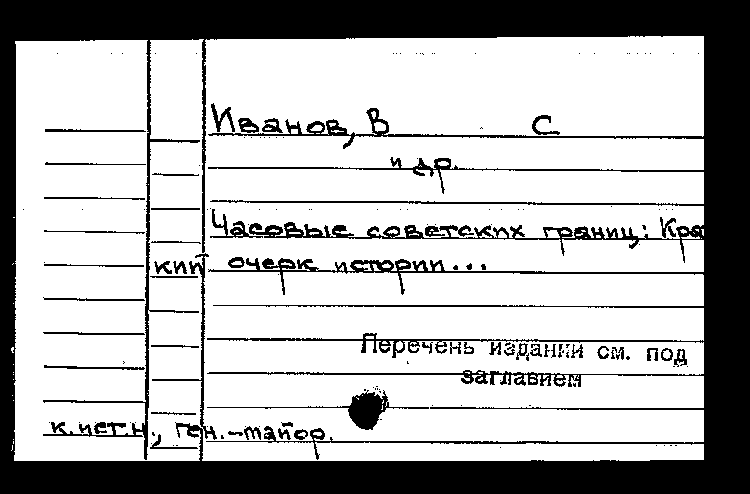 Иванов, В С
и др.
Часовые советских границ: Кра
кий очерк истории...
Перечень издании см. под
заглавием
к.ист.н., ген.-майор.